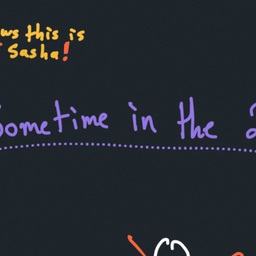 this is
Sasha!
Sometime in the